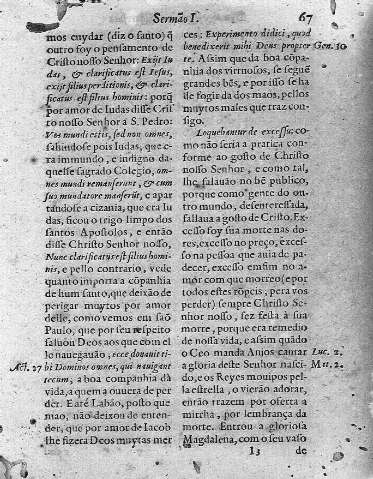 Sermão I.
67
mos cuydar (diz o santo) q̃
outro foy o pensamento de
Cristo nosso Senhor: Exijt Iu
das, & clarificatus est Iesus,
exijt filius perditionis, & clari-
ficatus est filius hominis: porq̃
por amor de Iudas disse Cris
to nosso Senhor a S. Pedro:
Vos mundi estis, sed non omnes,
sahindose pois Iudas, que e-
ra immundo, e indigno da-
quelle sagrado Colegio, om-
nes mundi remanserunt, & cum
suo mundatore manserũt, e apar
tandose a cizania, que era Iu
das, ficou o trigo limpo dos
santos Apostolos, e então
disse Christo Senhor nosso,
Nunc clarificatus est filius homi-
nis, e pello contrario, vede
quanto importa a cõpanhia
de hum santo, que deixão de
perigar muytos por amor
delle, como vemos em são
Paulo, que por seu respeito
saluou Deos aos que com el
lo nauegauão, ecce donauit ti-
Act. 27 bi Dominus omnes, qui nauigant
tecum, a boa companhia dá
vida, a quem a ouuera de per
der. E até Labão, posto que
mao, não deixou de enten-
der, que por amor de Iacob
lhe fizera Deos muytas mer
ces: Experimento didici, quod
benedixerit mihi Deus propter Gen. 30
te. Assim que da boa cõpa-
nhia dos virtuosos, se seguẽ
grandes bẽs, e por isso se há
de fogir da dos maos, pellos
muytos males que traz con-
sigo.
Loquebantur de excessu: co-
mo não seria a pratica con-
forme ao gosto de Christo
nosso Senhor, e como tal,
lhe, falauão no bẽ publico,
porque como gente do ou-
tro mundo, desenteressada,
fallaua a gosto de Christo. Ex-
cesso foy sua morte nas do-
res, excesso no preço, exces-
so na pessoa que auia de pa-
decer, excesso emfim no a-
mor com que morreo (e por
todos estes rõpeis, pera vos
perder) sempre Christo Se-
nhor nosso, fez festa à sua
morte, porque era remedio
de nossa vida, e assim quãdo
o Ceo manda Anjos cantar Luc. 2.
a gloria deste Senhor nasci- Mat. 2.
do, e os Reyes mouipos pel-
la estrella, o vierão adorar,
então trazem por oferta a
mirrha, por lembrança da
morte. Entrou a gloriosa
Magdalena, com o seu vaso
I3 de